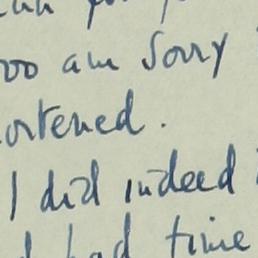 too am sorry
ortened.
I did indeed
had time